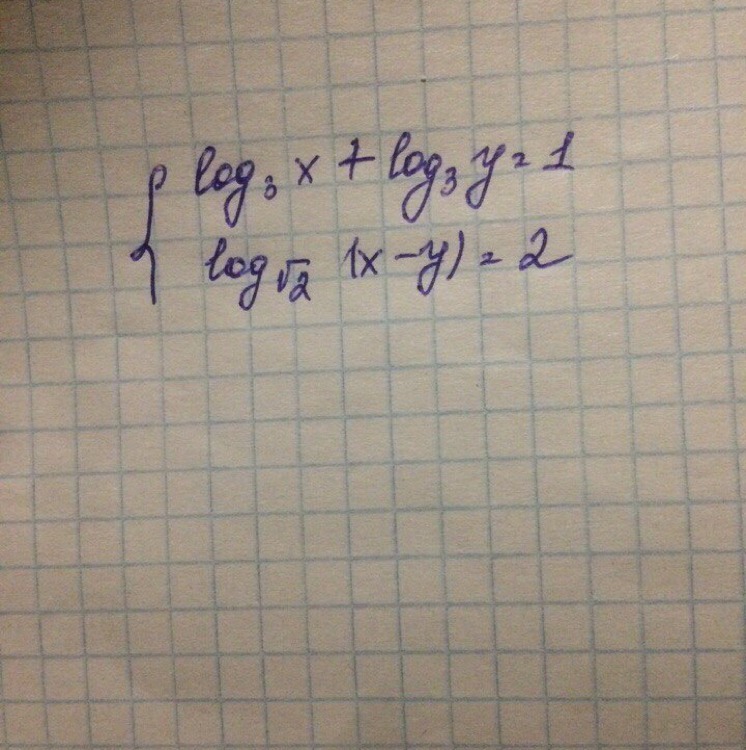 { log₃ x + log₃ y = 1
log√2 (x - y) = 2